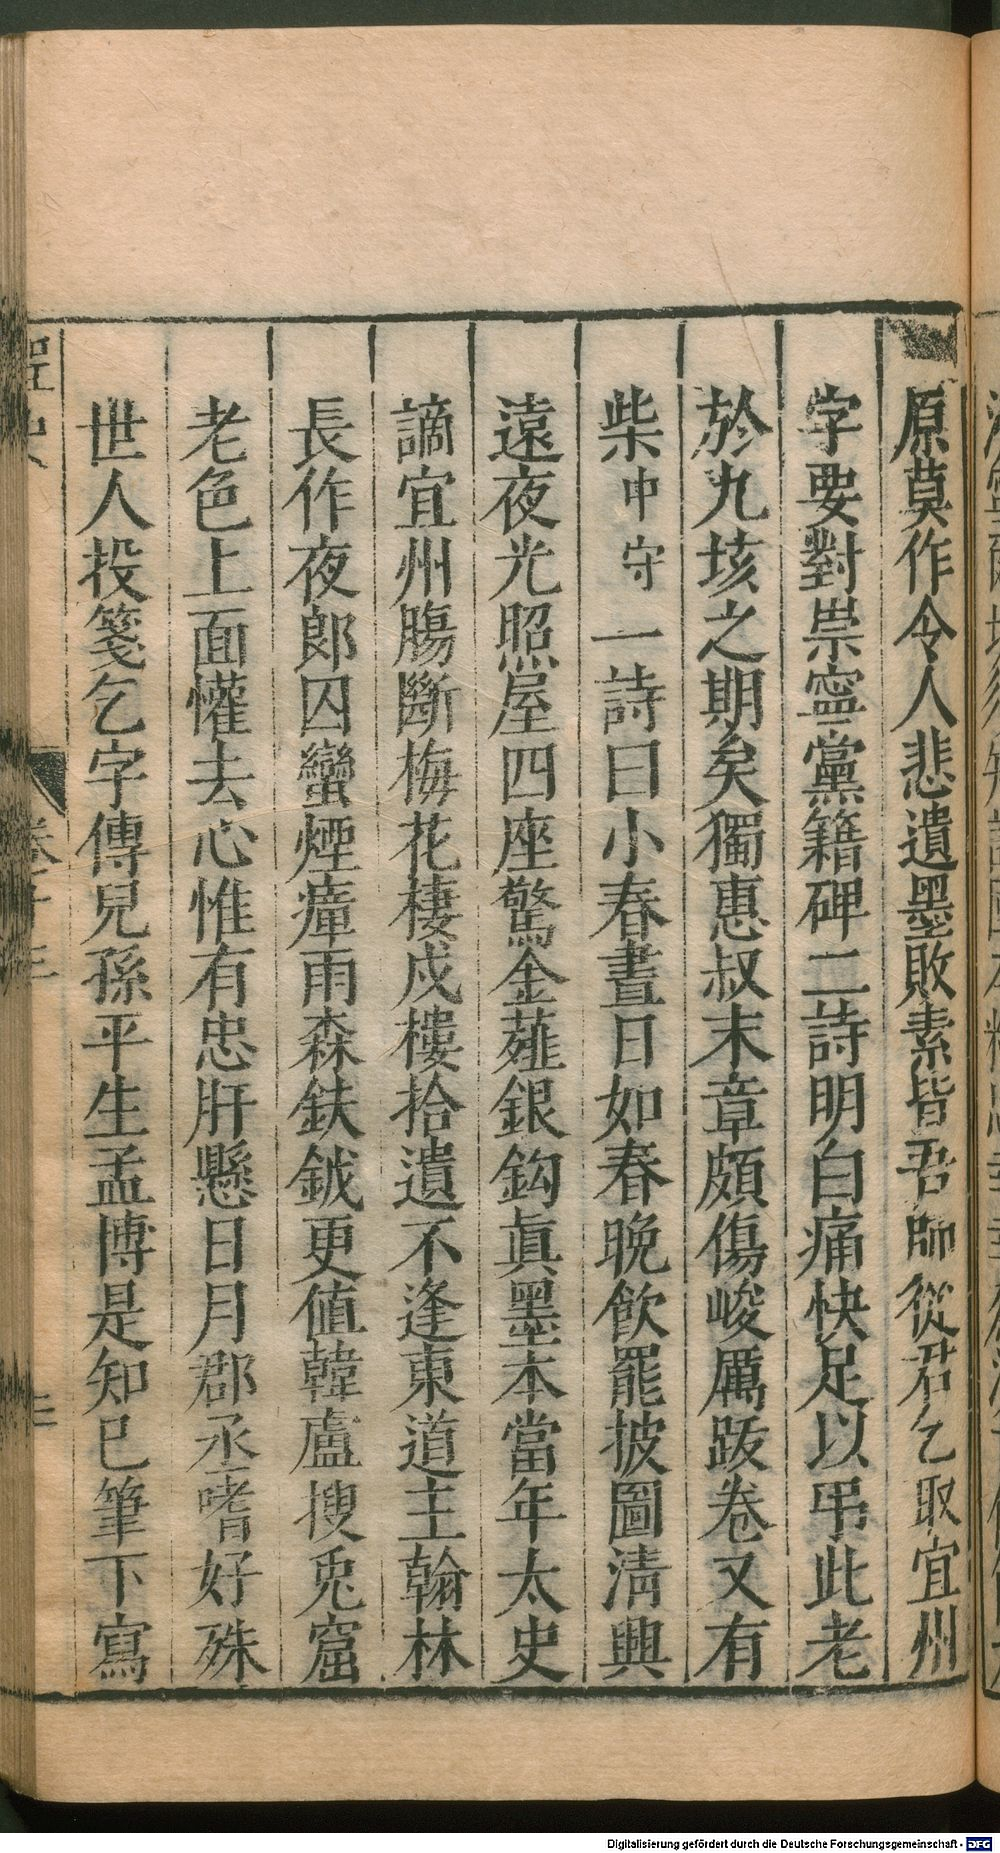 原莫作令人悲遺墨敗素皆吾師從君乞取宜州
字要對崇寧黨籍碑二詩明白痛快足以弔此老
於九垓之期矣獨惠叔末章頗傷峻厲跋卷又有
柴中守一詩曰小春晝日如春晚飲罷披圖清興
遠夜光照屋四座驚金薤銀鈎眞墨本當年太史
謫宜州腸斷梅花棲戍樓拾遺不逢東道主翰林
長作夜郎囚蠻煙瘴雨森鈇鉞更值韓盧搜兎窟
老色上面懽去心惟有忠肝懸日月郡丞嗜好殊
世人投箋乞字傳兒孫平生孟博是知己筆下寫
桯史
卷十三
Digitalisierung gefördert durch die Deutsche Forschungsgemeinschaft - DFG